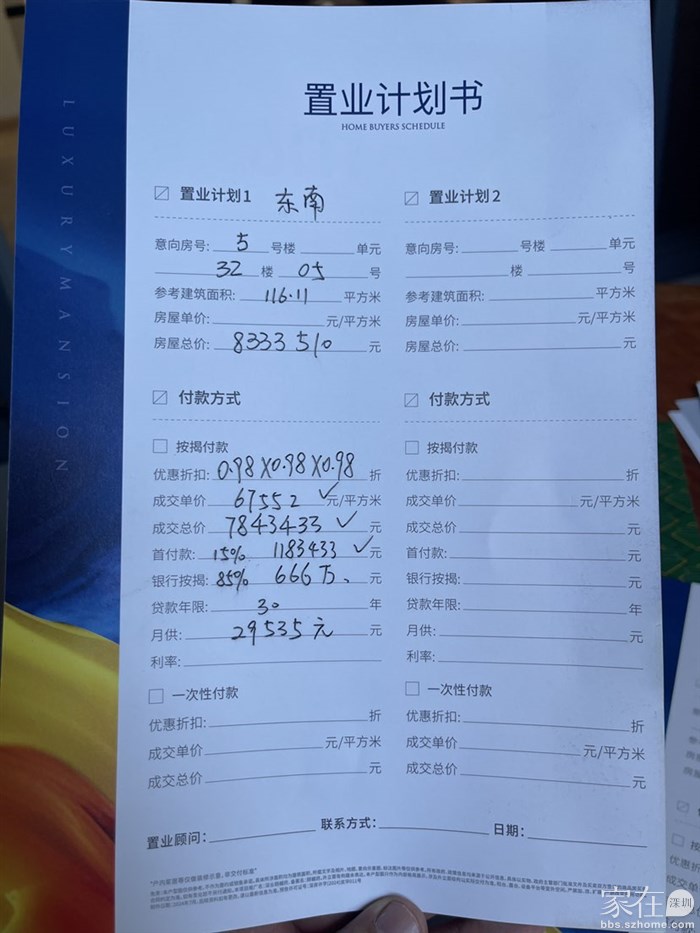 LUXURY MANSION
置业计划书
HOME BUYERS SCHEDULE
置业计划1 东南
意向房号: 5 号楼 单元
32 楼 05 号
参考建筑面积: 116.11 平方米
房屋单价: 元/平方米
房屋总价: 8333510 元
付款方式
按揭付款
优惠折扣: 0.98X0.98X0.98 折
成交单价 67552 ✓ 元/平方米
成交总价 7843433 ✓ 元
首付款: 15% 1183433 ✓ 元
银行按揭: 85% 666万、 元
贷款年限: 30 年
月供: 29535元 元
利率:
一次性付款
优惠折扣: 折
成交单价 元/平方米
成交总价 元
置业计划2
意向房号: 号楼 单元
楼 号
参考建筑面积: 平方米
房屋单价: 元/平方米
房屋总价: 元
付款方式
按揭付款
优惠折扣: 折
成交单价 元/平方米
成交总价 元
首付款: 元
银行按揭: 元
贷款年限: 年
月供: 元
利率:
一次性付款
优惠折扣: 折
成交单价 元/平方米
成交总价 元
置业顾问: 联系方式: 日期:
家在 深圳
bbs.szhome.com